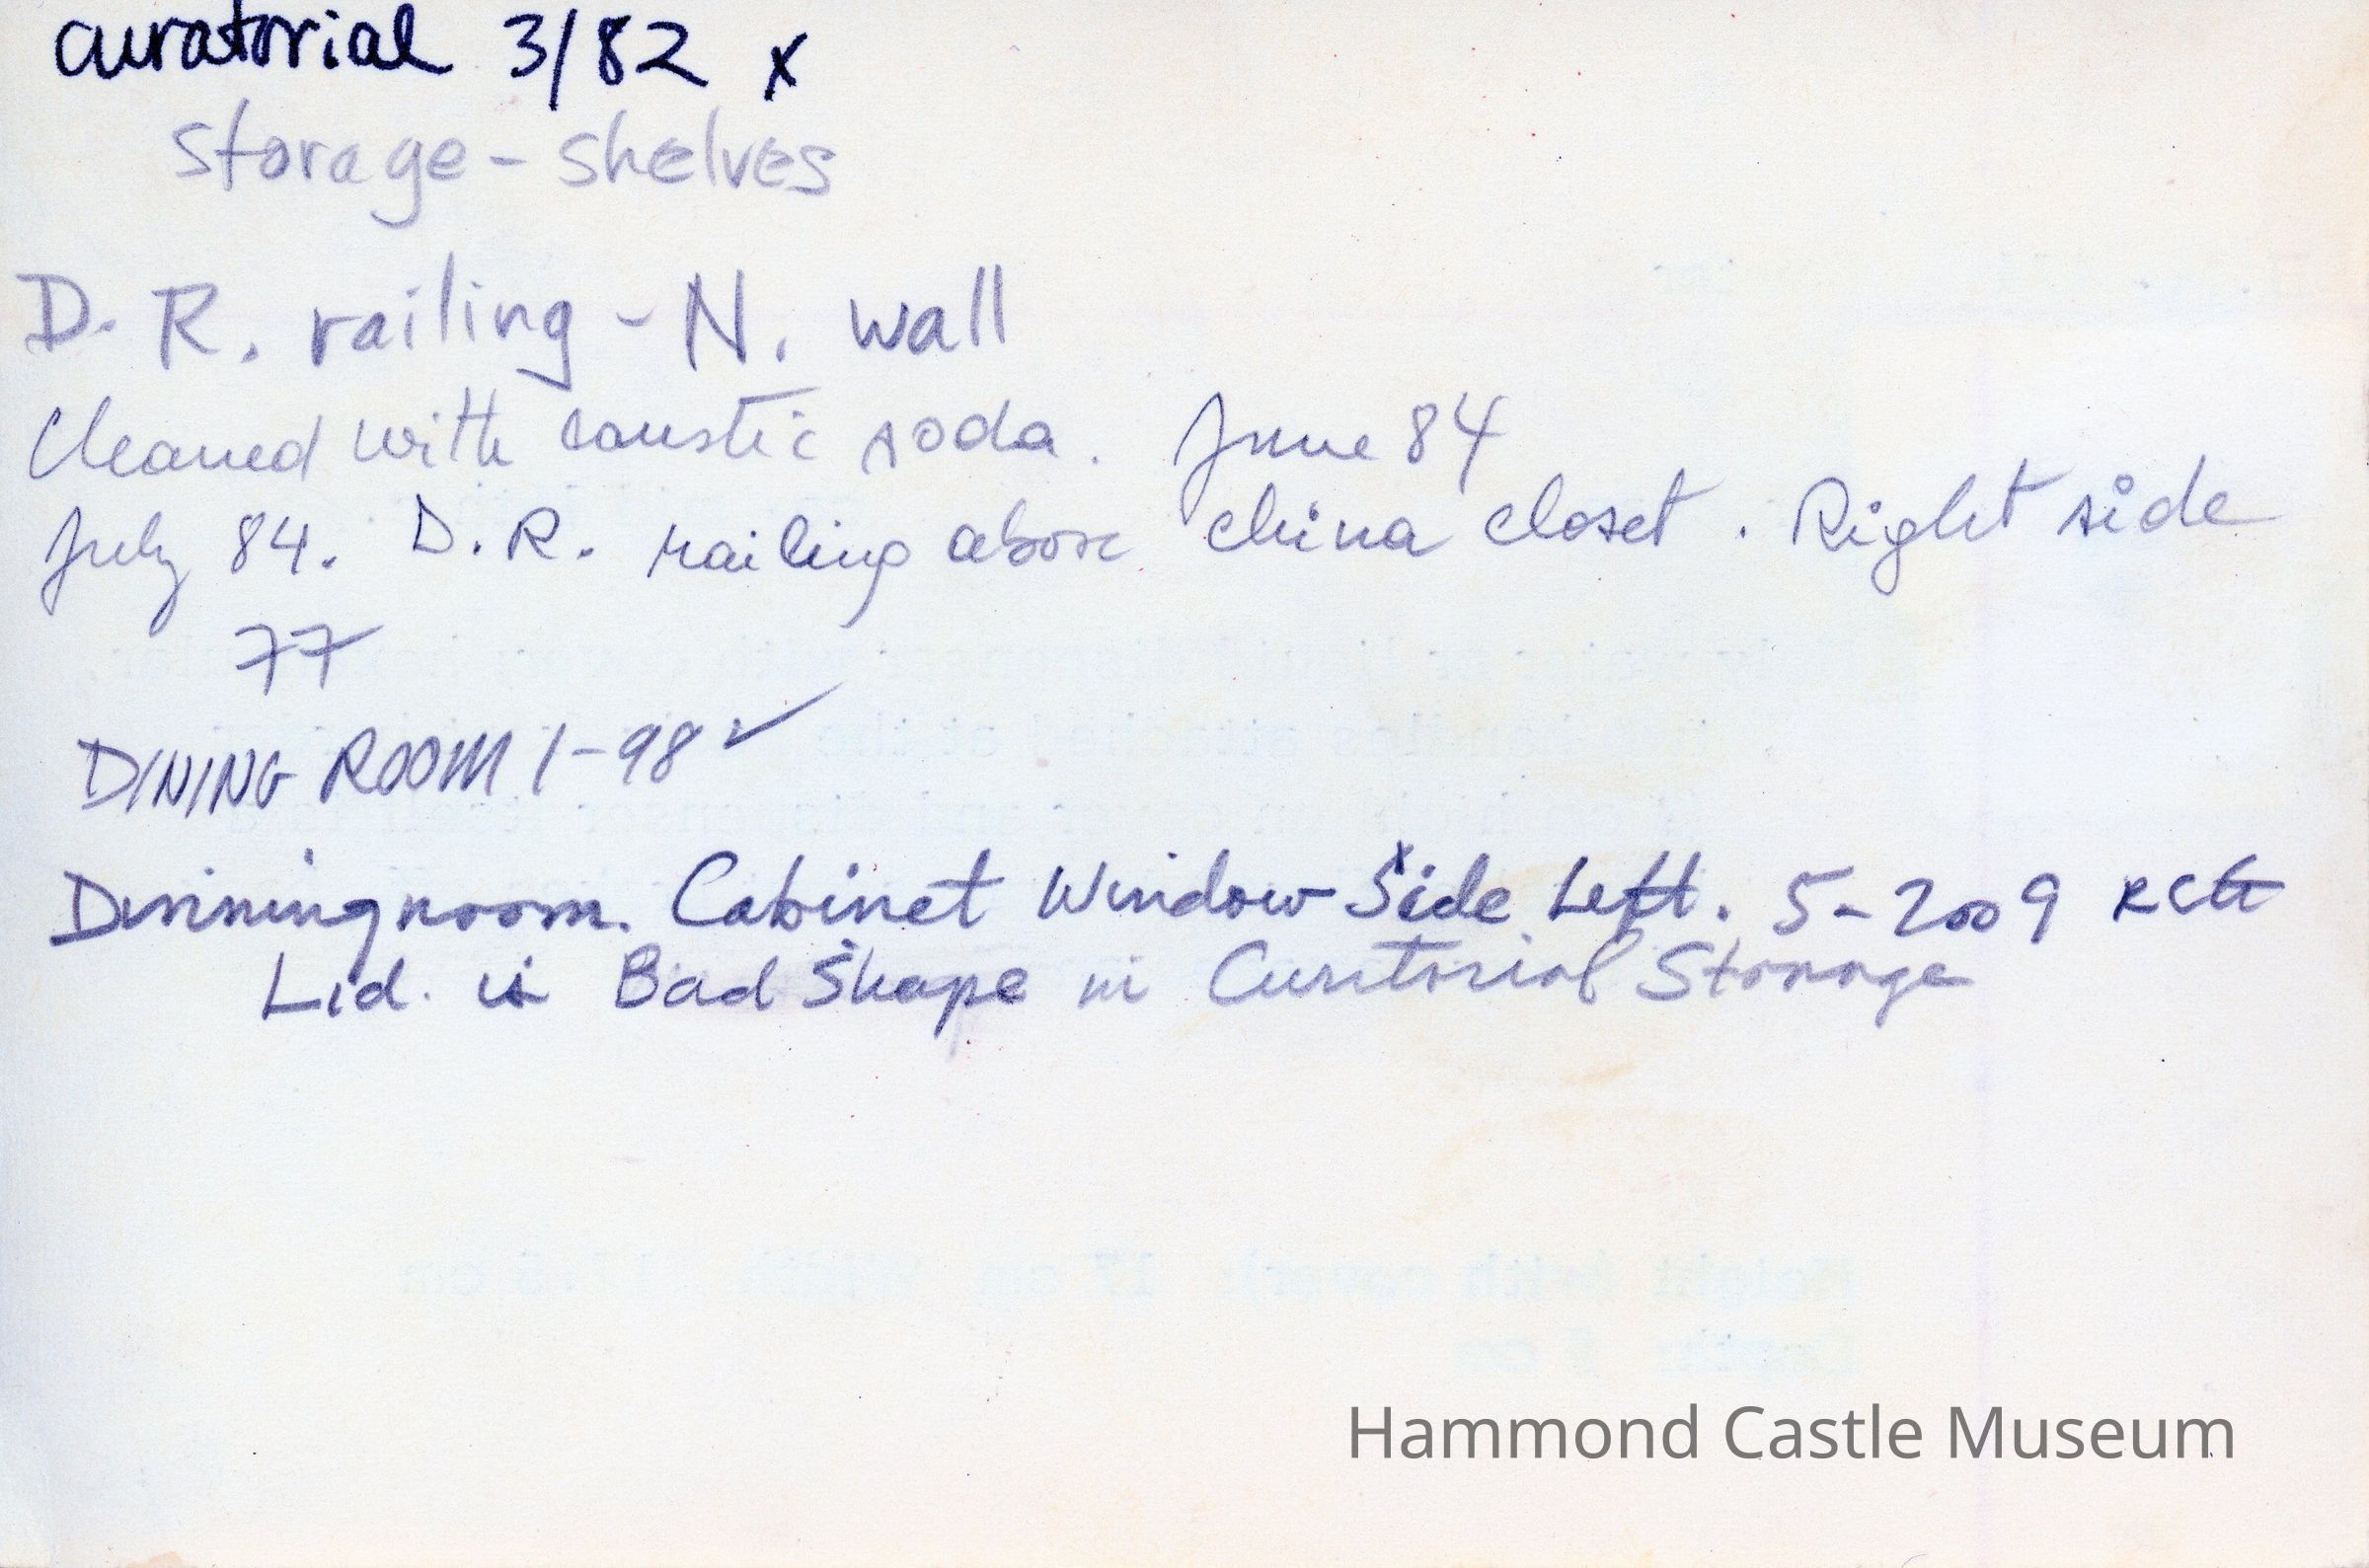 curatorial 3/82 x
storage - shelves
D. R. railing - N. wall
Cleaned with caustic soda. June 84
July 84. D.R. railing above china closet. Right side
77
DINING ROOM 1-98 ✓
Dininingroom. Cabinet Window Side Left. 5-2009
Lid. is Bad Shape in Curitorial Storage
Hammond Castle Museum